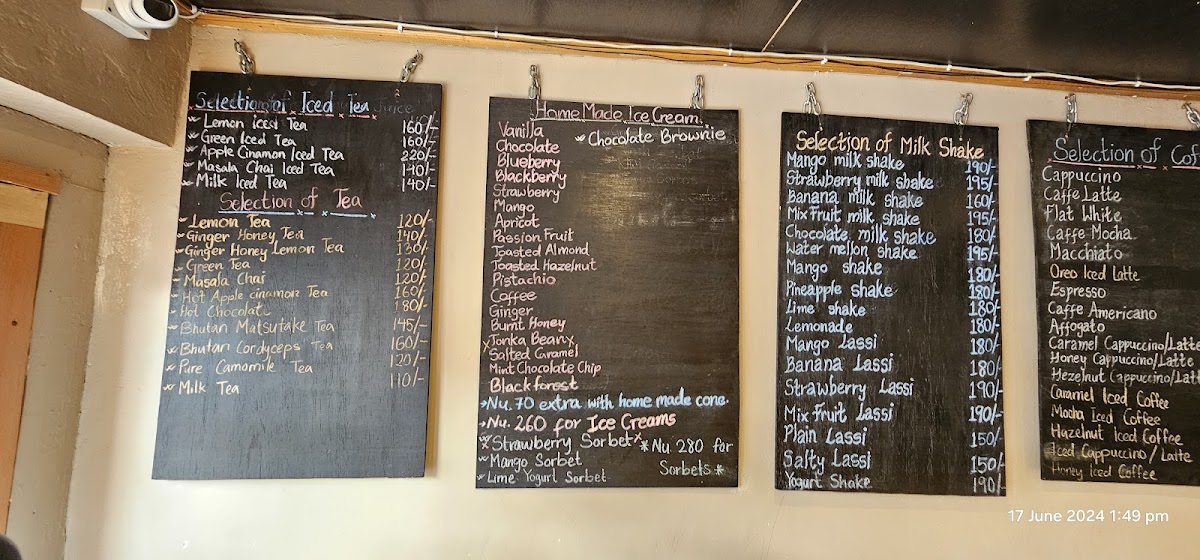 Selection of Iced Tea Juice
Lemon Iced Tea 160/-
Green Iced Tea 160/-
Apple Cinamon Iced Tea 220/-
Masala Chai Iced Tea 140/-
Milk Iced Tea 140/-
Selection of Tea
Lemon Tea 120/-
Ginger Honey Tea 140/-
Ginger Honey Lemon Tea 130/-
Green Tea 120/-
Masala Chai 120/-
Hot Apple cinamon Tea 160/-
Hot Chocolate 180/-
Bhutan Matsutake Tea 145/-
Bhutan Cordyceps Tea 160/-
Pure Camomile Tea 120/-
Milk Tea 110/-
Home Made Ice Cream
Vanilla
Chocolate Brownie
Chocolate
Blueberry
Blackberry
Strawberry
Mango
Apricot
Passion Fruit
Toasted Almond
Toasted Hazelnut
Pistachio
Coffee
Ginger
Burnt Honey
x Tonka Bean x
Salted Caramel
Mint Chocolate Chip
Blackforest
→Nu. 70 extra with home made cone.
→Nu. 260 for Ice Creams
x Strawberry Sorbet x
* Nu. 280 for Sorbets *
Mango Sorbet
Lime Yogurt Sorbet
Selection of Milk Shake
Mango milk shake 190/-
Strawberry milk shake 195/-
Banana milk shake 160/-
Mix Fruit milk shake 195/-
Chocolate milk shake 180/-
Water mellon shake 195/-
Mango shake 180/-
Pineapple shake 180/-
Lime shake 180/-
Lemonade 180/-
Mango Lassi 180/-
Banana Lassi 180/-
Strawberry Lassi 190/-
Mix Fruit Lassi 190/-
Plain Lassi 150/-
Salty Lassi 150/-
Yogurt Shake 190/-
Selection of Cof
Cappuccino
Caffe Latte
Flat White
Caffe Mocha
Macchiato
Oreo Iced Latte
Espresso
Caffe Americano
Affogato
Caramel Cappuccino/Latte
Honey Cappuccino/Latte
Hezelnut Cappuccino/Latt
Caramel Iced Coffee
Mocha Iced Coffee
Hazelnut Iced Coffee
Iced Cappuccino / Latte
Honey Iced Coffee
17 June 2024 1:49 pm